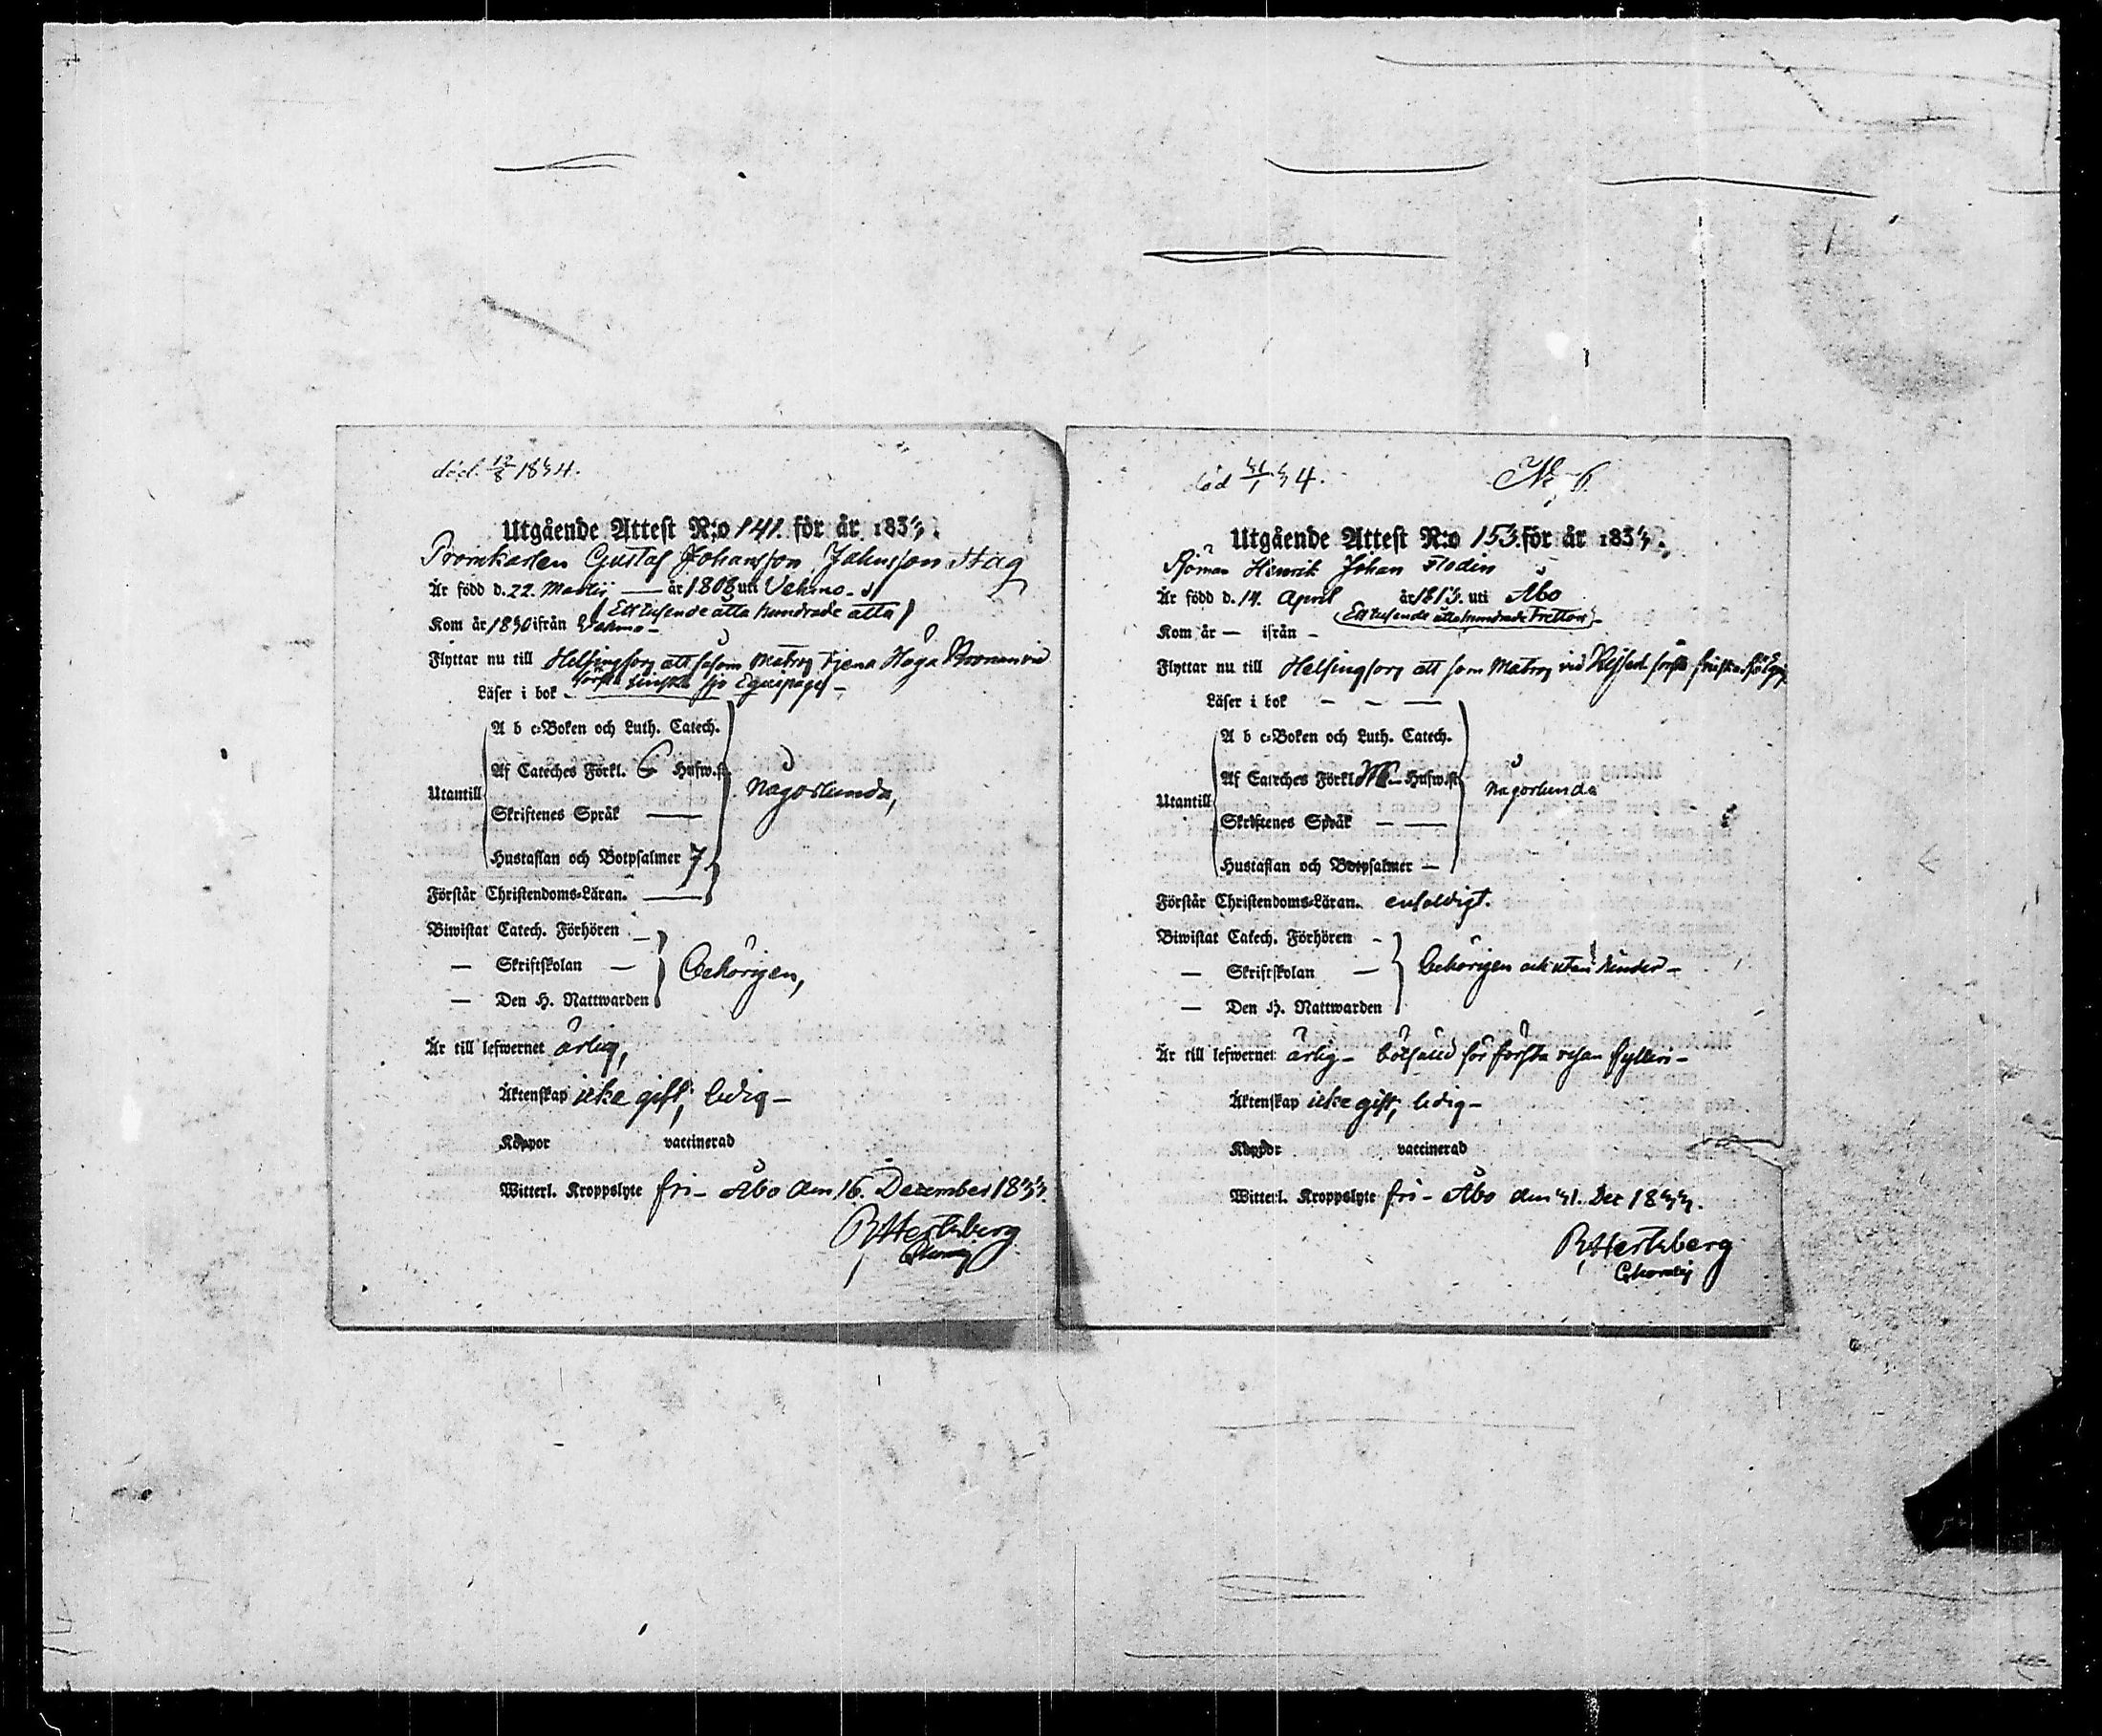 död 12/8 1834.
Utgående Attest N:o 141. för år 1833.
Gustaf Johansson, Johnsson Stag
Är född d. 22. Martii — år 1808 uti Vehmo -
(Ett tusende åtta hundrade åtta)
Kom år 1830 ifrån Vehmo -
Flyttar nu till Helsingfors att såsom Matros tjena Höga Kronan vid
första finska sjö Equipaget -
Läser i bok -
Utantill
A b c-Boken och Luth. Catech.
Af Cateches Förkl. 6 Husw.st.
Skriftenes Språk —
Hustaflan och Botpsalmer 7
någorlunda,
Förstår Christendoms-Läran. —
Biwistat Catech. Förhören -
— Skriftskolan —
— Den H. Nattwarden
behörigen,
Är till lefwernet ärlig,
Äktenskap icke gift, ledig -
Koppor vaccinerad
Witterl. Kroppslyte fri - Åbo den 16. December 1833.
Hertzberg
död 31/1 34.
No 6.
Utgående Attest N:o 153. för år 1833.
Sjöman Henrik Johan Flodin
Är född d. 14. April år 1813. uti Åbo
(Ett tusende åtta hundrade Tretton) -
Kom år — ifrån -
Flyttar nu till Helsingfors att som Matros vid första finska Sjö
Läser i bok - - —
Utantill
A b c-Boken och Luth. Catech.
Af Cateches Förkl. Husw.st.
Skriftenes Språk - —
Hustaflan och Botpsalmer —
någorlunda
Förstår Christendoms-Läran. enfaldigt.
Biwistat Catech. Förhören -
— Skriftskolan —
— Den H. Nattwarden
behörigen och utan hinder -
Är till lefwernet ärlig - bötfäld för första resan fylleri -
Äktenskap icke gift, ledig -
Koppor vaccinerad
Witterl. Kroppslyte fri - Åbo den 31. Dec 1833.
Hertzberg